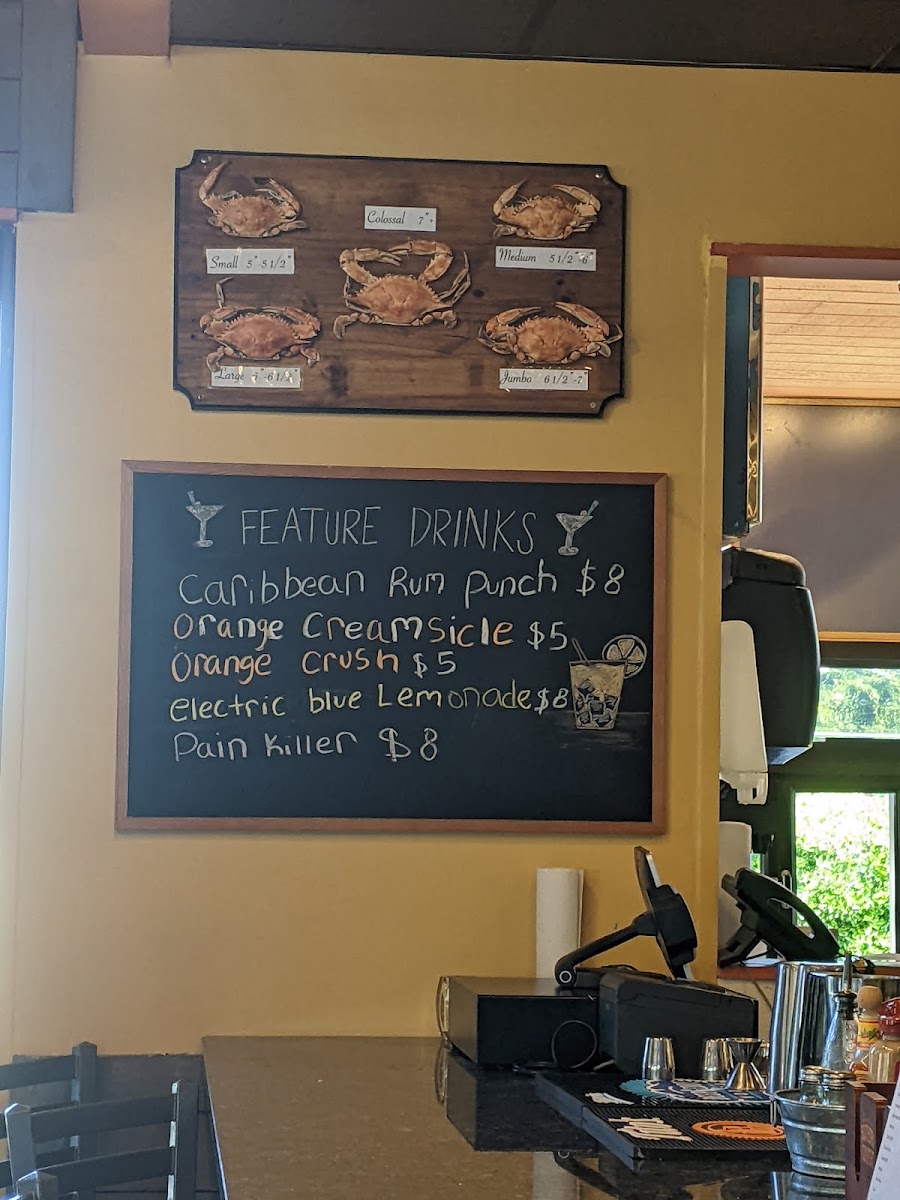 Colossal 7"+
Small 5"-5 1/2"
Medium 5 1/2"-6"
Large 6"-6 1/2"
Jumbo 6 1/2"-7"
FEATURE DRINKS
Caribbean Rum Punch $8
Orange Creamsicle $5
Orange crush $5
electric blue Lemonade $8
Pain Killer $8